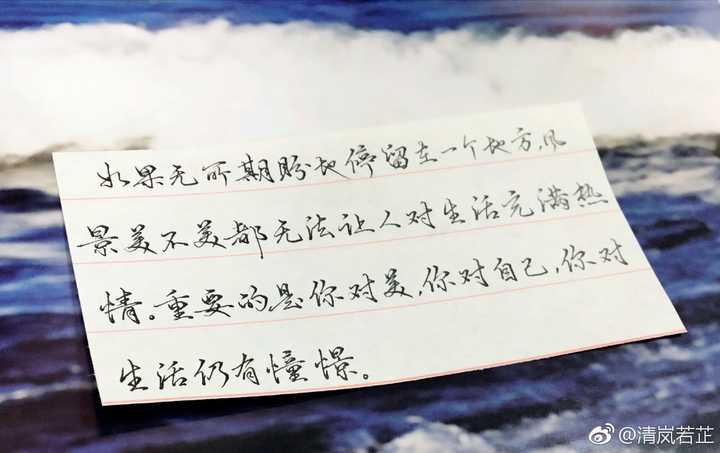 如果无所期盼地停留在一个地方,风
景美不美都无法让人对生活充满热
情。重要的是你对美,你对自己,你对
生活仍有憧憬。
@清岚若芷